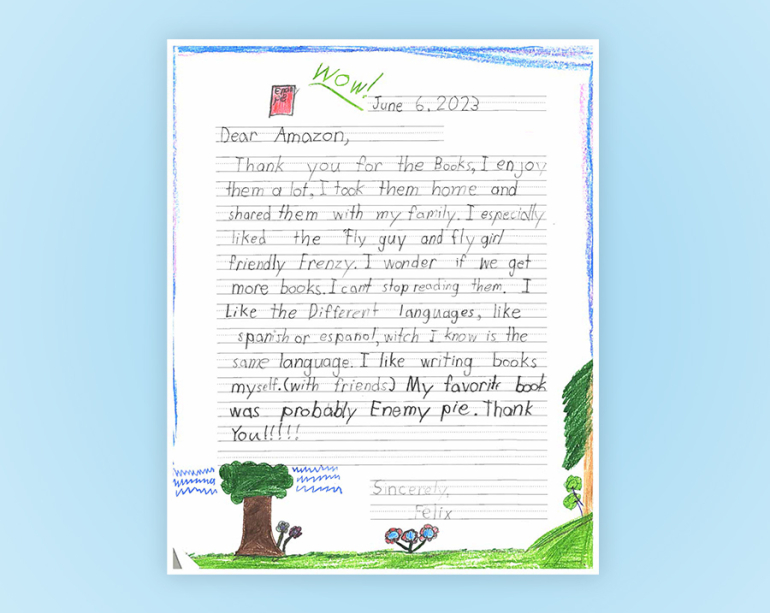 Wow!
Enemy pie
June 6, 2023
Dear Amazon,
Thank you for the Books, I enjoy
them a lot, I took them home and
shared them with my family. I especially
liked the "Fly guy and fly girl
friendly Frenzy. I wonder if we get
more books. I can't stop reading them. I
Like the Different languages, like
spanish or espanol, witch I know is the
same language. I like writing books
myself.(with friends) My favorite book
was probably Enemy pie. Thank
You!!!!!
Sincerely,
Felix